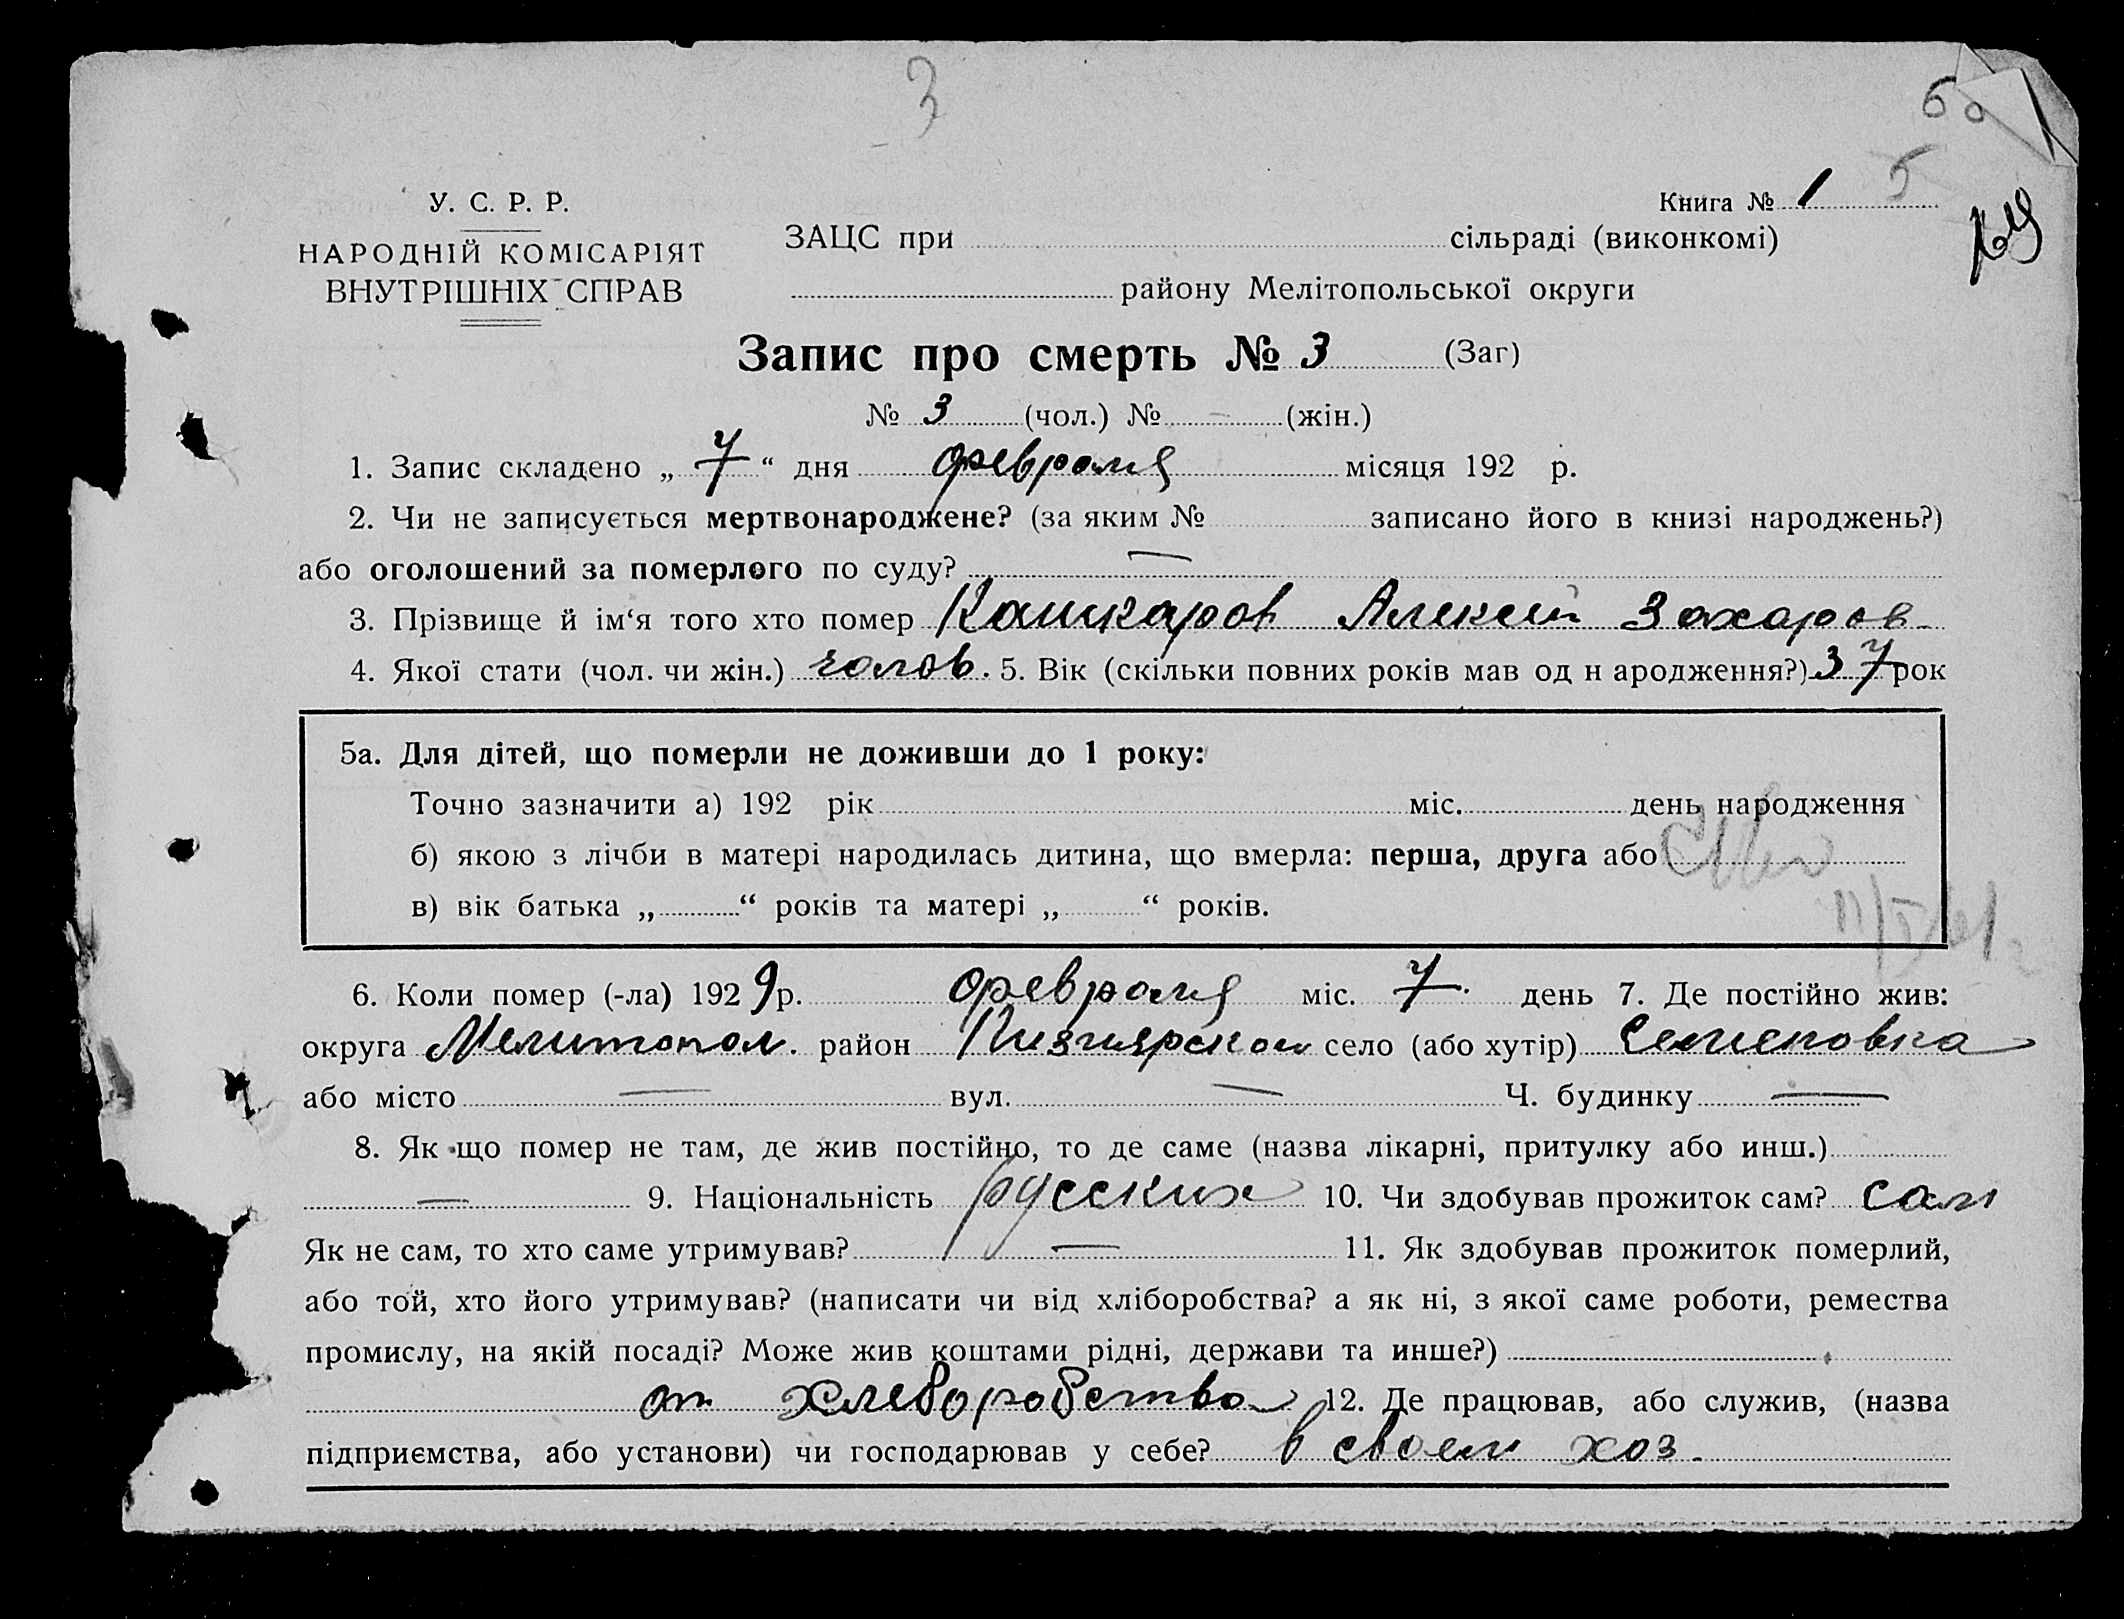 3
60
5
У. С. Р. Р.
Книга № 1
НАРОДНІЙ КОМІСАРІЯТ
ЗАЦС при сільраді (виконкомі)
ВНУТРІШНІХ СПРАВ
району Мелітопольської округи
Запис про смерть № 3 (Заг)
№ 3 (чол.) № – (жін.)
1. Запис складено „ 7 “ дня февраля місяця 192 р.
2. Чи не записується мертвонароджене? (за яким № записано його в книзі народжень?)
або оголошений за померлого по суду? —
3. Прізвище й ім‘я того хто помер Кашкаров Алексей Захаров
4. Якої стати (чол. чи жін.) чолов. 5. Вік (скільки повних років мав од н ародження?) 37 рок
5а. Для дітей, що померли не доживши до 1 року:
Точно зазначити а) 192 рік міс. день народження
б) якою з лічби в матері народилась дитина, що вмерла: перша, друга або
в) вік батька „ “ років та матері „ “ років.
6. Коли помер (-ла) 1929 р. февраля міс. 7 день 7. Де постійно жив:
округа Мелитопол. район село (або хутір) Семеновка
або місто — вул. — Ч. будинку —
8. Як що помер не там, де жив постійно, то де саме (назва лікарні, притулку або инш.)
— 9. Національність русских 10. Чи здобував прожиток сам? сам
Як не сам, то хто саме утримував? — 11. Як здобував прожиток померлий,
або той, хто його утримував? (написати чи від хліборобства? а як ні, з якої саме роботи, ремества
промислу, на якій посаді? Може жив коштами рідні, держави та инше?)
от хлеборобства 12. Де працював, або служив, (назва
підприємства, або установи) чи господарював у себе? в своем хоз.